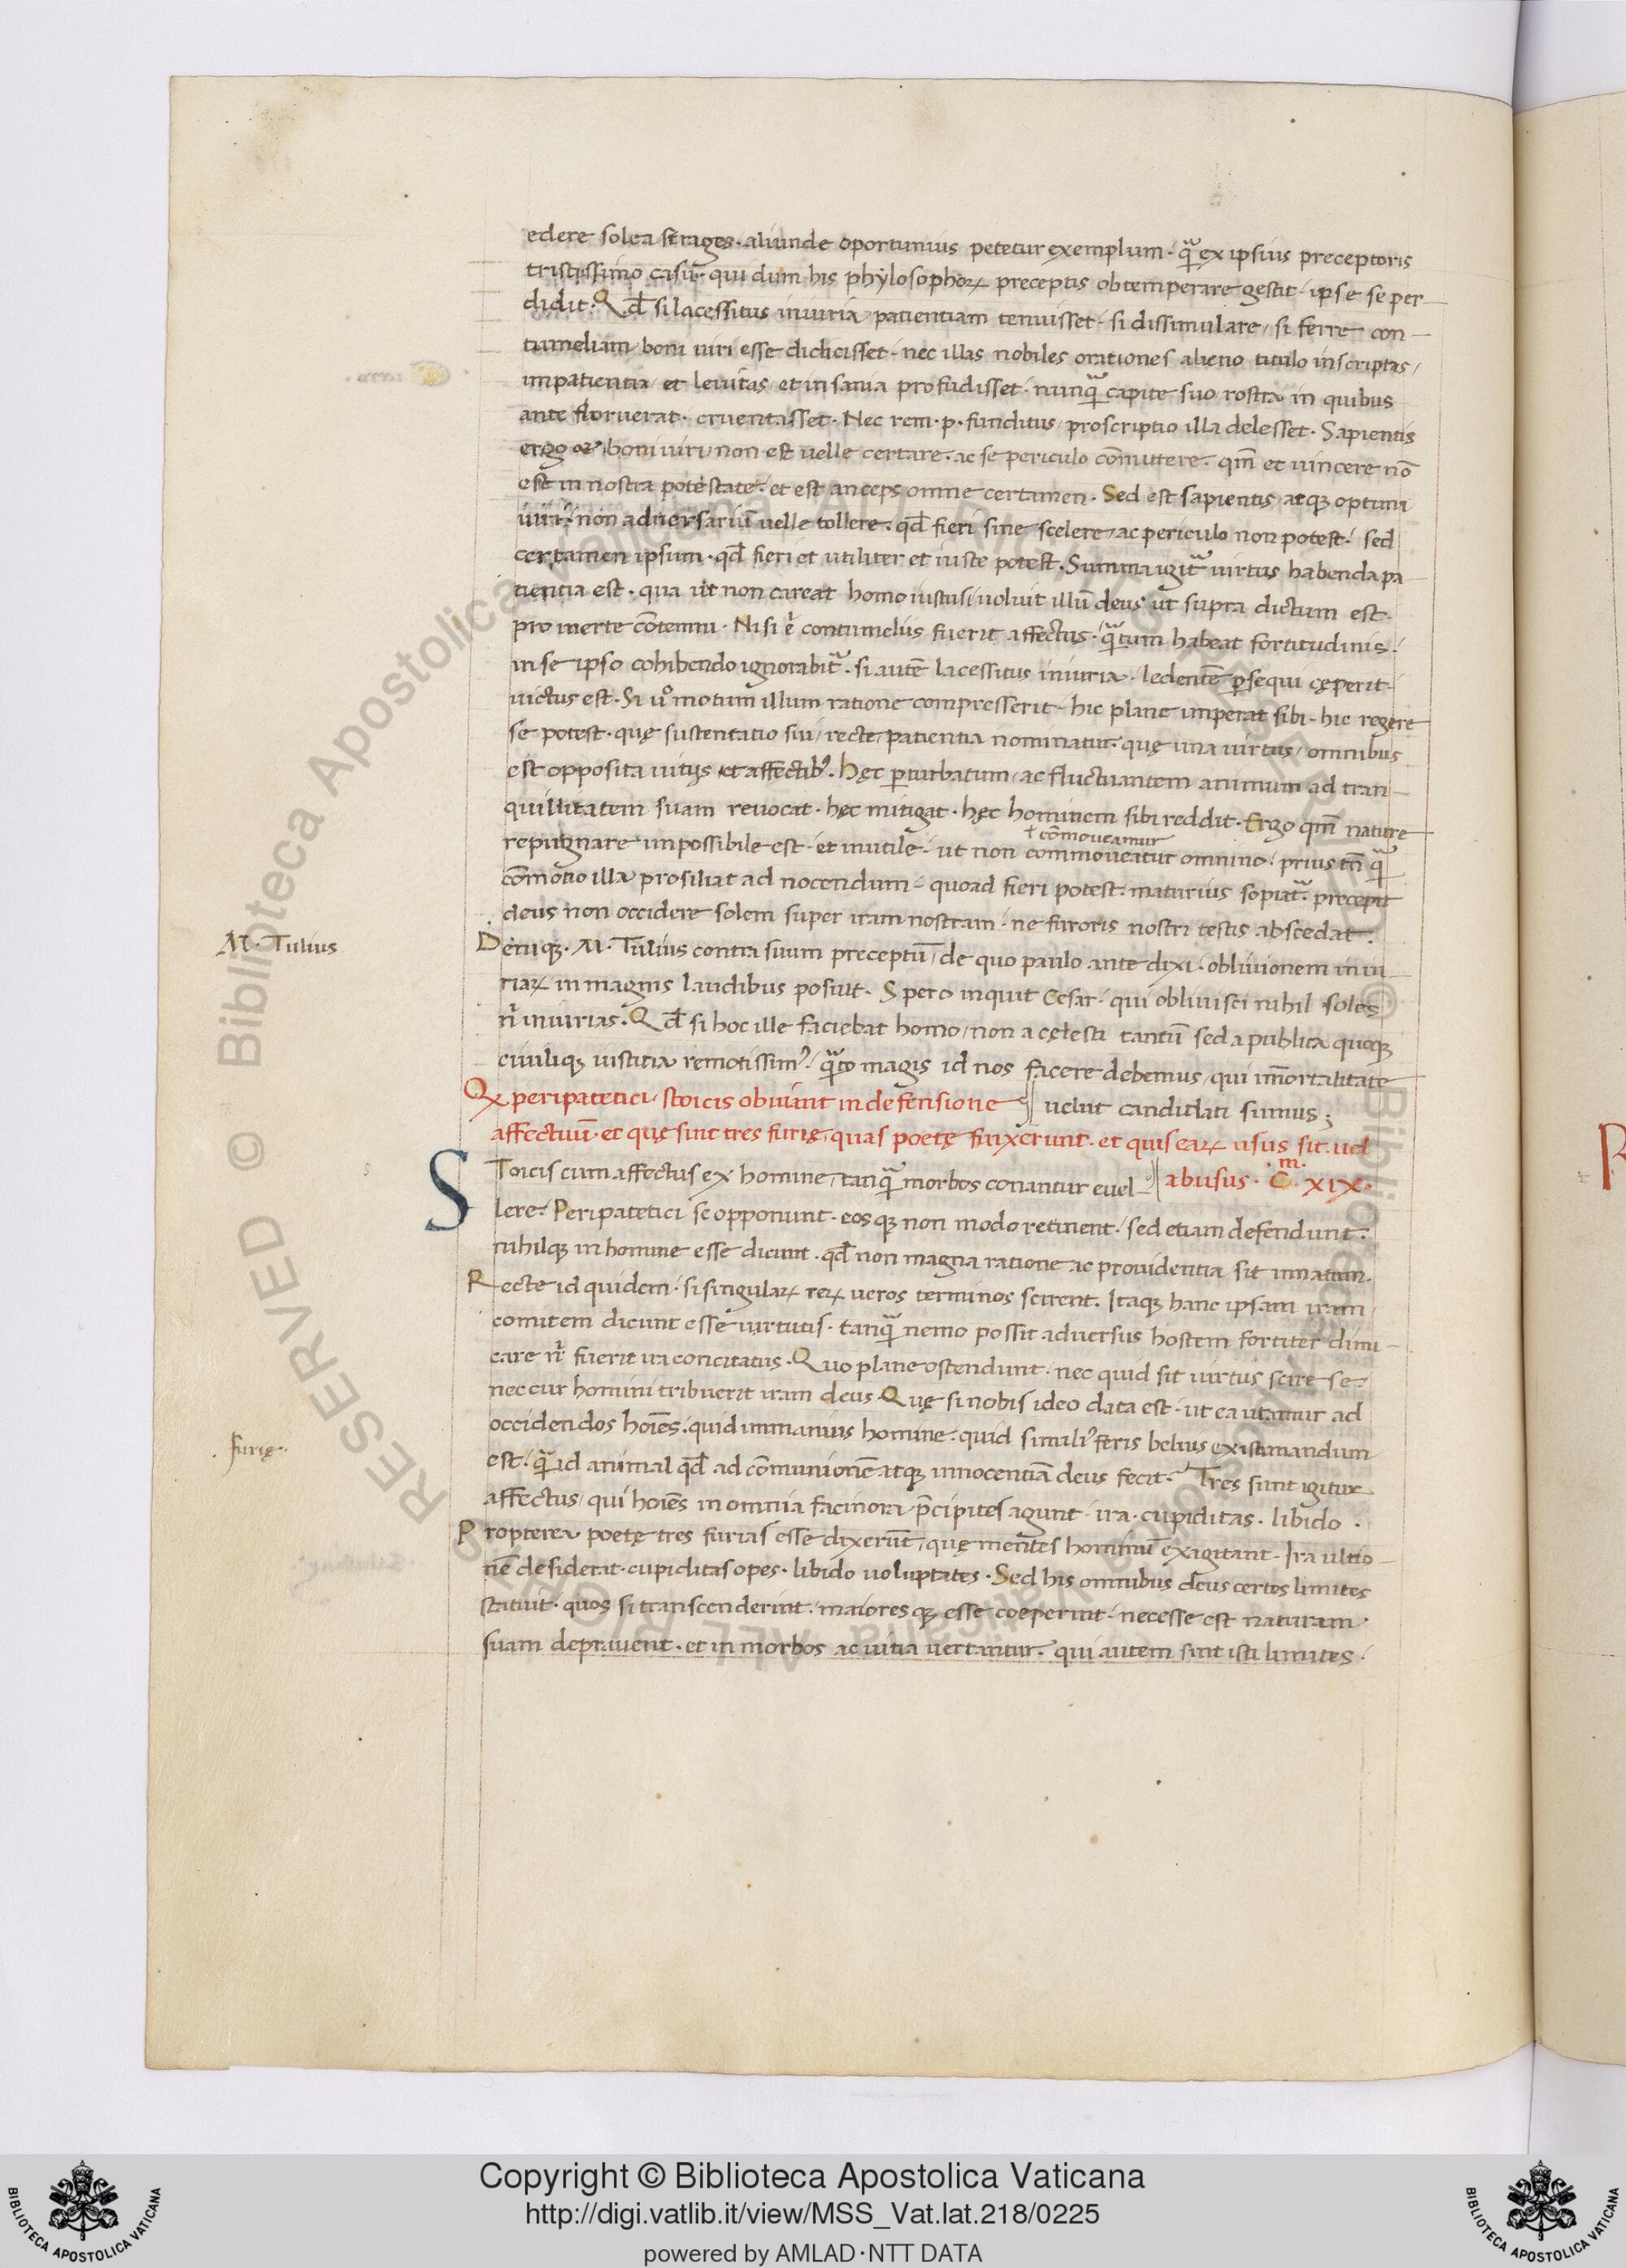 edere solea strages. aliunde oportunius petetur exemplum. qͣꝫ ex ipsius preceptoris
tristissimo casu. qui dum his phylosophoꝝ preceptis obtemperare gestit. ipse se per-
didit. Qđ si lacessitus iniuria patientiam tenuisset. si dissimulare, si ferre con-
tumeliam, boni uiri esse didicisset. nec illas nobiles orationes alieno titulo inscriptas,
impatientia, et leuitas, et insania profudisset. nunqͣꝫ capite suo rostra in quibus
ante floruerat. cruentasset. Nec rem. p. funditus, proscriptio illa delesset. Sapientis
ergo boni uiri, non est uelle certare. ac se periculo cōmittere. qm̄ et uincere nō
est in nostra potestate. et est anceps omne certamen. Sed est sapientis, atqꝫ optimi
uiri. non aduersariū uelle tollere. qđ fieri sine scelere, ac periculo non potest. sed
certamen ipsum. qđ fieri et utiliter et iuste potest. Summa igit᷑ uirtus habenda pa-
tientia est. qua ut non careat homo iustus, uoluit illū deus ut supra dictum est.
pro inerte cōtemni. Nisi .n. contumeliis fuerit affectus. qͣꝫtum habeat fortitudinis.
in se ipso cohibendo ignorabit᷑. si autē lacessitus iniuria. ledentē ꝑsequi cęperit.
uictus est. Si uͦ motum illum ratione compresserit. hic plane imperat sibi. hic regere
se potest. quę sustentatio sui, recte patientia nominatur. quę una uirtus, omnibus
est opposita uitijs et affectibꝰ. Hęc ꝑturbatum, ac fluctuantem animum ad tran-
quillitatem suam reuocat. hęc mitigat. hęc hominem sibi reddit. Ergo qm̄ nature
ł cōmoueamur
repugnare impossibile est. et inutile. ut non commoueatur omnino. prius tn̄ qͣꝫ
cōmotio illa prosiliat ad nocendum. quoad fieri potest. maturius sopiat᷑. precepit
deus non occidere solem super iram nostram. ne furoris nostri testis abscedat.
M. Tulius
Deniqꝫ. M. Tulius contra suum preceptū, de quo paulo ante dixi. obliuionem iniu-
riaꝝ in magnis laudibus posuit. Spero inquit Cesar. qui obliuisci nihil soles
n̄ iniurias. Qđ si hoc ille faciebat homo, non a cęlesti tantū sed a publica quoqꝫ
ciuiliqꝫ iustitia remotissimꝰ, qͣꝫto magis id nos facere debemus, qui imortalitate
Qꝫ peripatetici, stoicis obuiant in defensione ‖ uelut candidati sumus;
affectuū. et quę sint tres furię, quas poetę finxerunt. et quis eaꝝ usus sit. uel
Stoicis cum affectus ex homine, tanqͣꝫ morbos conantur euel- ‖ abusus. C.ᵐ XIX.
lere. Peripatetici se opponunt. eosqꝫ non modo retinent. sed etiam defendunt.
nihilqꝫ in homine esse dicunt. qđ non magna ratione ac prouidentia sit innatum.
Recte id quidem. si singulaꝝ reꝝ ueros terminos scirent. Itaqꝫ hanc ipsam iram,
comitem dicunt esse uirtutis. tanqͣꝫ nemo possit aduersus hostem fortiter dimi-
care n̄ fuerit ira concitatus. Quo plane ostendunt. nec quid sit uirtus scire se.
nec cur homini tribuerit iram deus. Quę si nobis ideo data est. ut ea utamur ad
occidendos hoīes. quid immanius homine. quid similiꝰ feris beluis existimandum
furię.
est. qͣꝫ id animal qđ ad cōmunionē atqꝫ innocentiā deus fecit. Tres sunt igitur
affectus, qui hoīes in omnia facinora p̄cipites agunt. ira. cupiditas. libido.
Propterea poetę tres furias esse dixerūt, quę mentes hominū exagitant. Ira ultio-
nē desiderat. cupiditas opes. libido uoluptates. Sed his omnibus deus certos limites
statuit. quos si transcenderint. maioresqꝫ esse coeperint. necesse est naturam
suam deprauent. et in morbos ac uitia uertantur. qui autem sint isti limites.
© Biblioteca Apostolica Vaticana ALL RIGHTS RESERVED
Copyright © Biblioteca Apostolica Vaticana
http://digi.vatlib.it/view/MSS_Vat.lat.218/0225
powered by AMLAD·NTT DATA
BIBLIOTECA APOSTOLICA VATICANA
BIBLIOTECA APOSTOLICA VATICANA